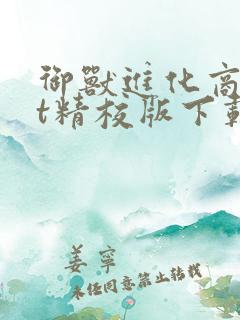 御獸進化商
t精校版下載
姜寧
未经同意禁止转载